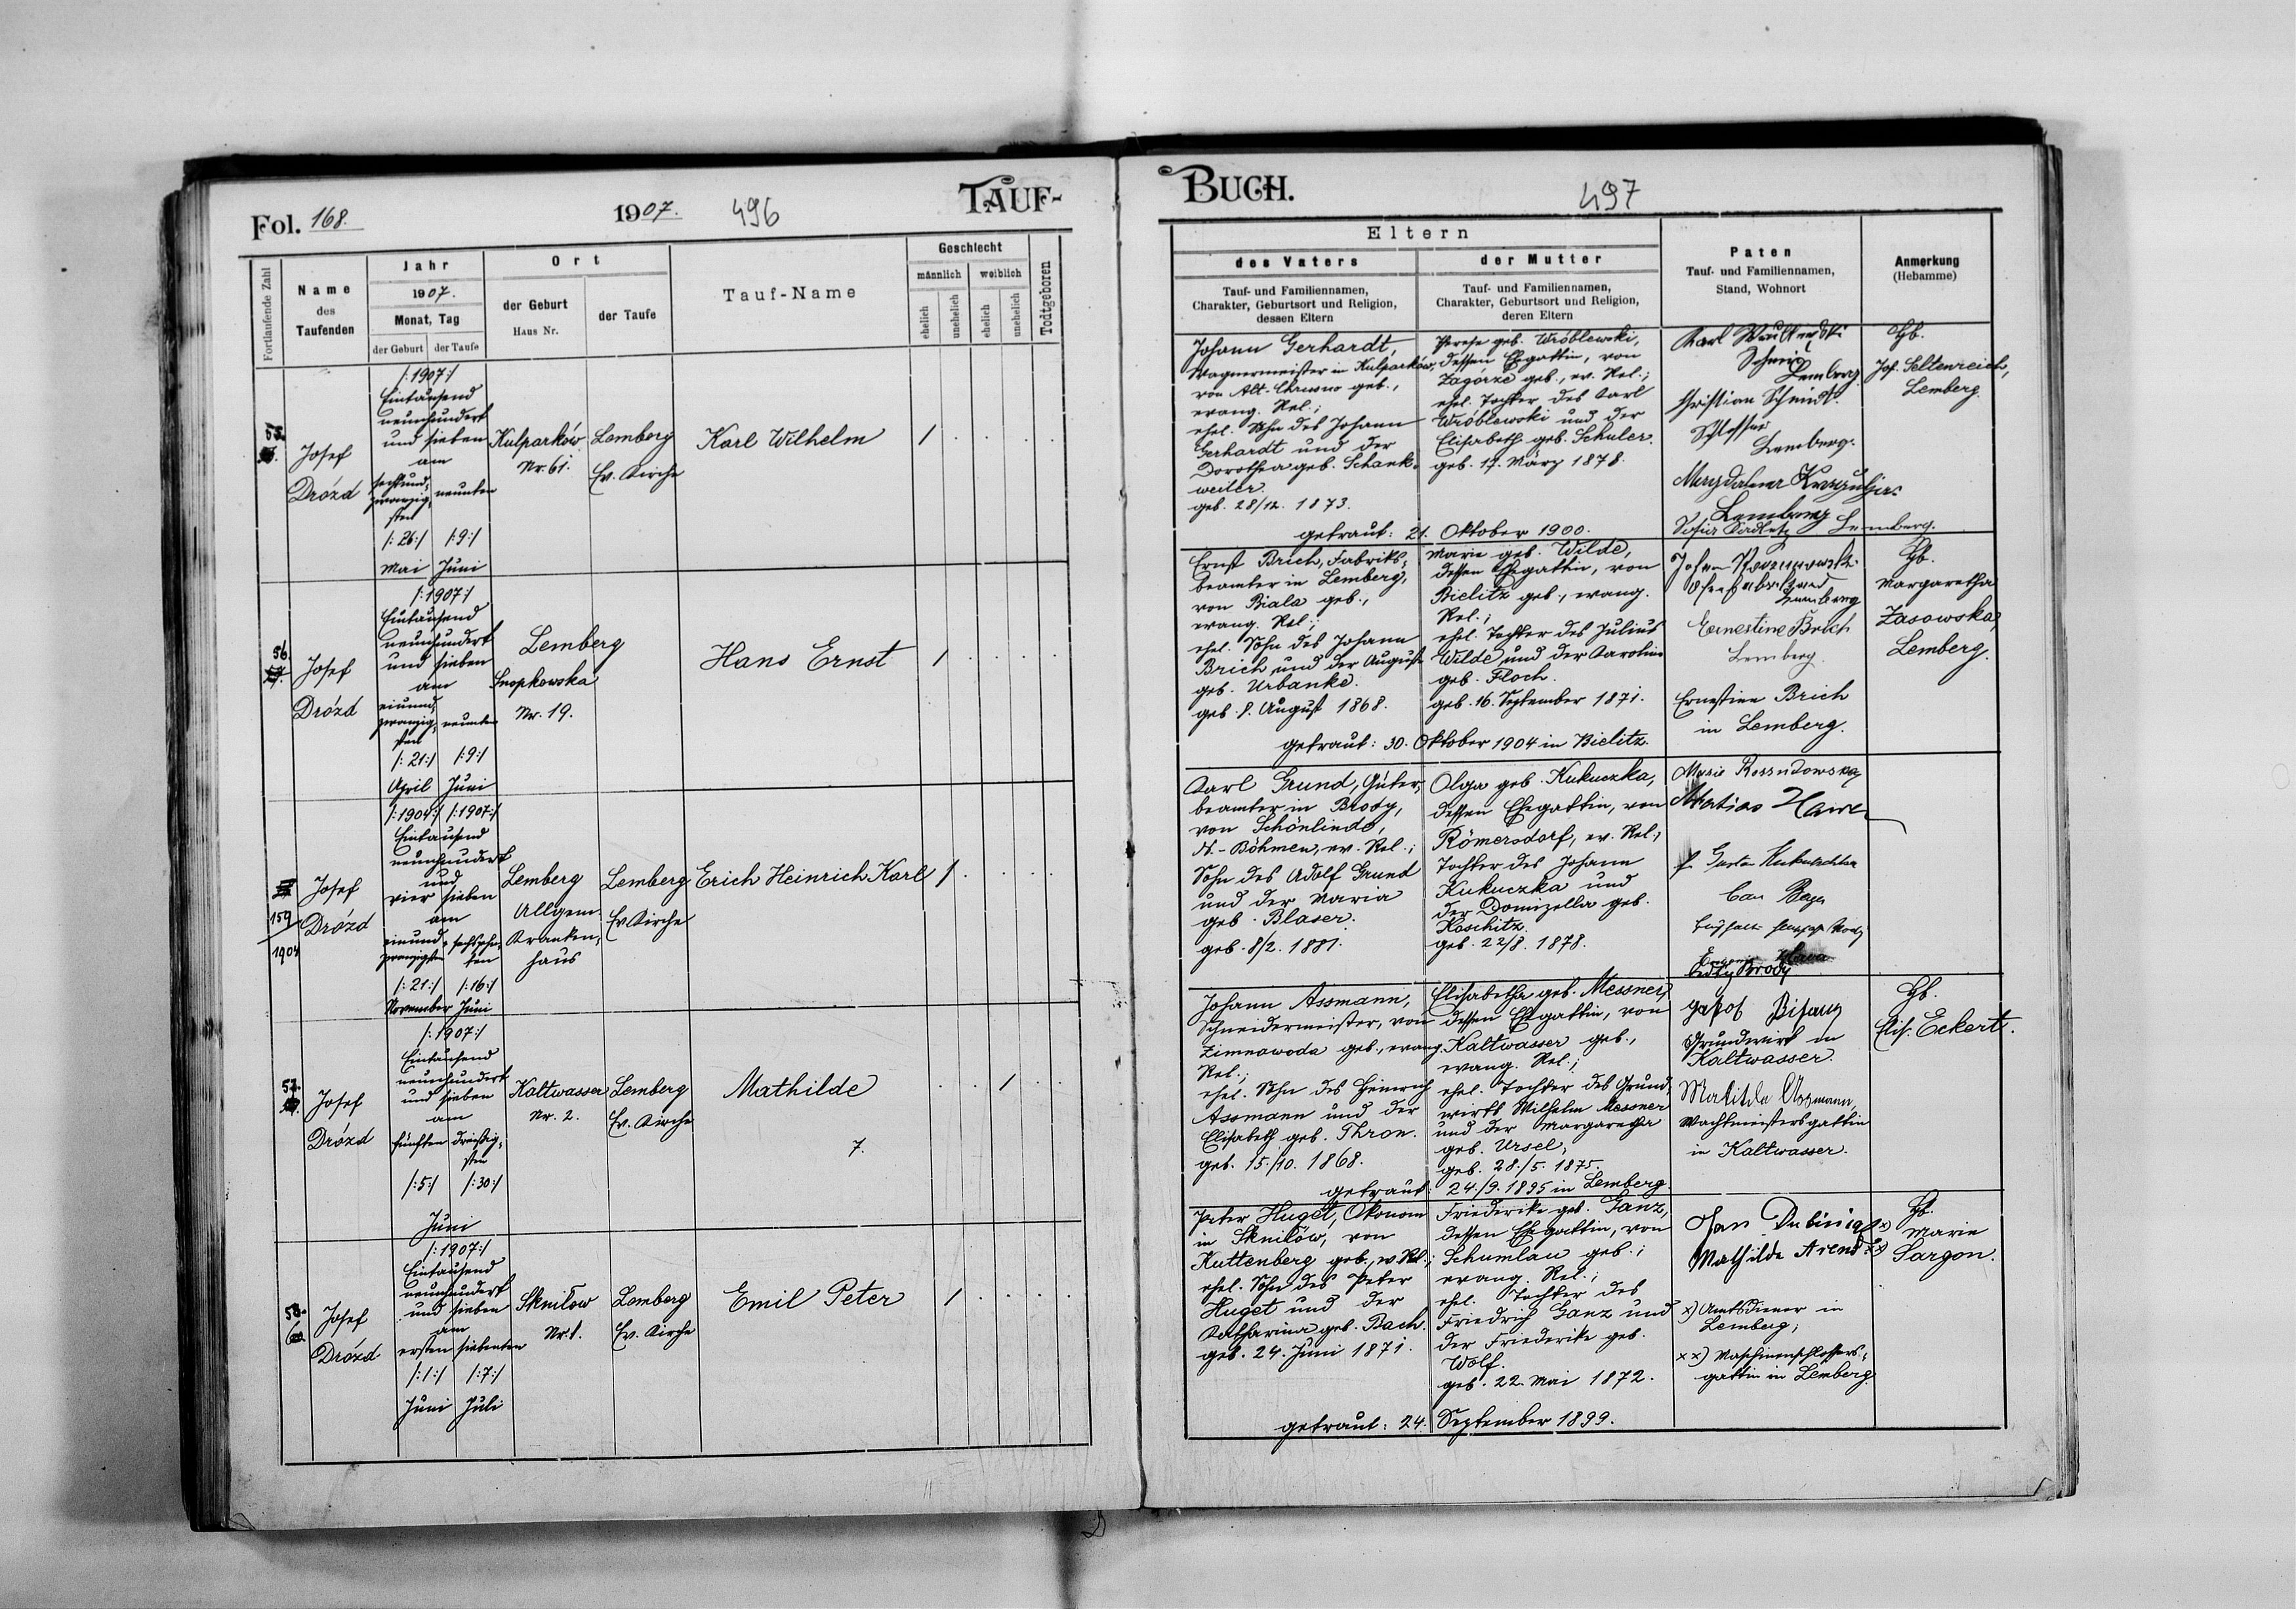 Fol. 168.
1907.
496
TAUF-
Fortlaufende Zahl
Name
des
Taufenden
Jahr
1907.
Monat, Tag
der Geburt
der Taufe
Ort
der Geburt
Haus Nr.
der Taufe
Tauf-Name
Geschlecht
männlich
weiblich
ehelich
unehelich
ehelich
unehelich
Todtgeboren
55.
Josef
Drózd
/:1907:/
Eintausend
neunhundert
und sieben
am
sechsund-
zwanzig- neunten
sten
/:26:/ /:9:/
Mai Juni
Kulparków
Nr. 61.
Lemberg
Ev. Kirche
Karl Wilhelm
1
56.
Josef
Drózd
/:1907:/
Eintausend
neunhundert
und sieben
am
einund-
zwanzig- neunten
sten
/:21:/ /:9:/
April Juni
Lemberg
Snopkowska
Nr. 19.
Hans Ernst
1
159
1904
Josef
Drózd
/:1904:/ /:1907:/
Eintausend
neunhundert
und
vier sieben
am
einund- sechzehn-
zwanzigsten ten
/:21:/ /:16:/
November Juni
Lemberg
Allgem.
Kranken-
haus
Lemberg
Ev. Kirche
Erich Heinrich Karl
1
57.
Josef
Drózd
/:1907:/
Eintausend
neunhundert
und sieben
am
fünften dreißig-
sten
/:5:/ /:30:/
Juni
Kaltwasser
Nr. 2.
Lemberg
Ev. Kirche
Mathilde
7.
1
58.
Josef
Drózd
/:1907:/
Eintausend
neunhundert
und sieben
am
ersten siebenten
/:1:/ /:7:/
Juni Juli
Skniłow
Nr. 1.
Lemberg
Ev. Kirche
Emil Peter
1
BUCH.
497
Eltern
des Vaters
Tauf- und Familiennamen,
Charakter, Geburtsort und Religion,
dessen Eltern
der Mutter
Tauf- und Familiennamen,
Charakter, Geburtsort und Religion,
deren Eltern
Paten
Tauf- und Familiennamen,
Stand, Wohnort
Anmerkung
(Hebamme)
Johann Gerhardt,
Wagnermeister in Kulparków,
von Alt-Chrusno geb.,
evang. Rel.;
ehel. Sohn des Johann
Gerhardt und der
Dorothea geb. Schank-
weiler.
geb. 28/12. 1873.
Therese geb. Wróblewski,
dessen Ehegattin, von
Zagórze geb., ev. Rel.;
ehel. Tochter des Karl
Wróblewski und der
Elisabeth geb. Schuler.
geb. 17. März 1878.
getraut: 21. Oktober 1900.
Karl
Schmid
Lemberg
Christian Schmidt
Schlosser
Lemberg.
Magdalena
Lemberg
Lemberg.
Hb.
Jos. Seltenreich,
Lemberg.
Ernst Brich, Fabriks-
beamter in Lemberg,
von Biala geb.,
evang. Rel.;
ehel. Sohn des Johann
Brich und der Auguste
geb. Urbanke.
geb. 8. August 1868.
Marie geb. Wilde,
dessen Ehegattin, von
Bielitz geb., evang.
Rel.;
ehel. Tochter des Julius
Wilde und der Karoline
geb. Floch.
geb. 16. September 1871.
getraut: 30. Oktober 1904 in Bielitz.
Johann
Lemberg
Ernestine Brich
Lemberg.
Ernestine Brich
in Lemberg.
Hb.
Margaretha
Zasowska,
Lemberg.
Karl Grund, Güter-
beamter in Brody,
von Schönlinde,
N.-Böhmen, ev. Rel.;
Sohn des Adolf Grund
und der Maria
geb. Blaser.
geb. 8/2. 1881.
Olga geb. Kukuczka,
dessen Ehegattin, von
Römersdorf, ev. Rel.;
Tochter des Johann
Kukuczka und
der Domizella geb.
Koschitz.
geb. 22/8. 1878.
Marie
Brody
Johann Assmann,
Schneidermeister, von
Zimnawoda geb., evang.
Rel.;
ehel. Sohn des Heinrich
Assmann und der
Elisabeth geb. Thron.
geb. 15./10. 1868.
Elisabetha geb. Messner,
dessen Ehegattin, von
Kaltwasser geb.,
evang. Rel.;
ehel. Tochter des Grund-
wirts Wilhelm Messner
und der Margaretha
geb. Ursel,
geb. 28./5. 1875.
getraut: 24./9. 1895 in Lemberg.
Jakob Bisanz
Grundwirt in
Kaltwasser.
Matilda Assmann,
Wachtmeistersgattin
in Kaltwasser.
Hb.
Elis. Eckert.
Peter Huget, Ökonom
in Skniłów, von
Kuttenberg geb., ev. Rel.;
ehel. Sohn des Peter
Huget und der
Katharina geb. Bach.
geb. 24. Juni 1871.
Friederike geb. Ganz,
dessen Ehegattin, von
Schumlau geb.;
evang. Rel.;
ehel. Tochter des
Friedrich Ganz und
der Friederike geb.
Wolf.
geb. 22. Mai 1872.
getraut: 24. September 1899.
Jan x)
Mathilde Arend xx)
x) Amtsdiener in
Lemberg;
xx) Maschinenschlossers-
gattin in Lemberg.
Hb.
Marie
Sargon.